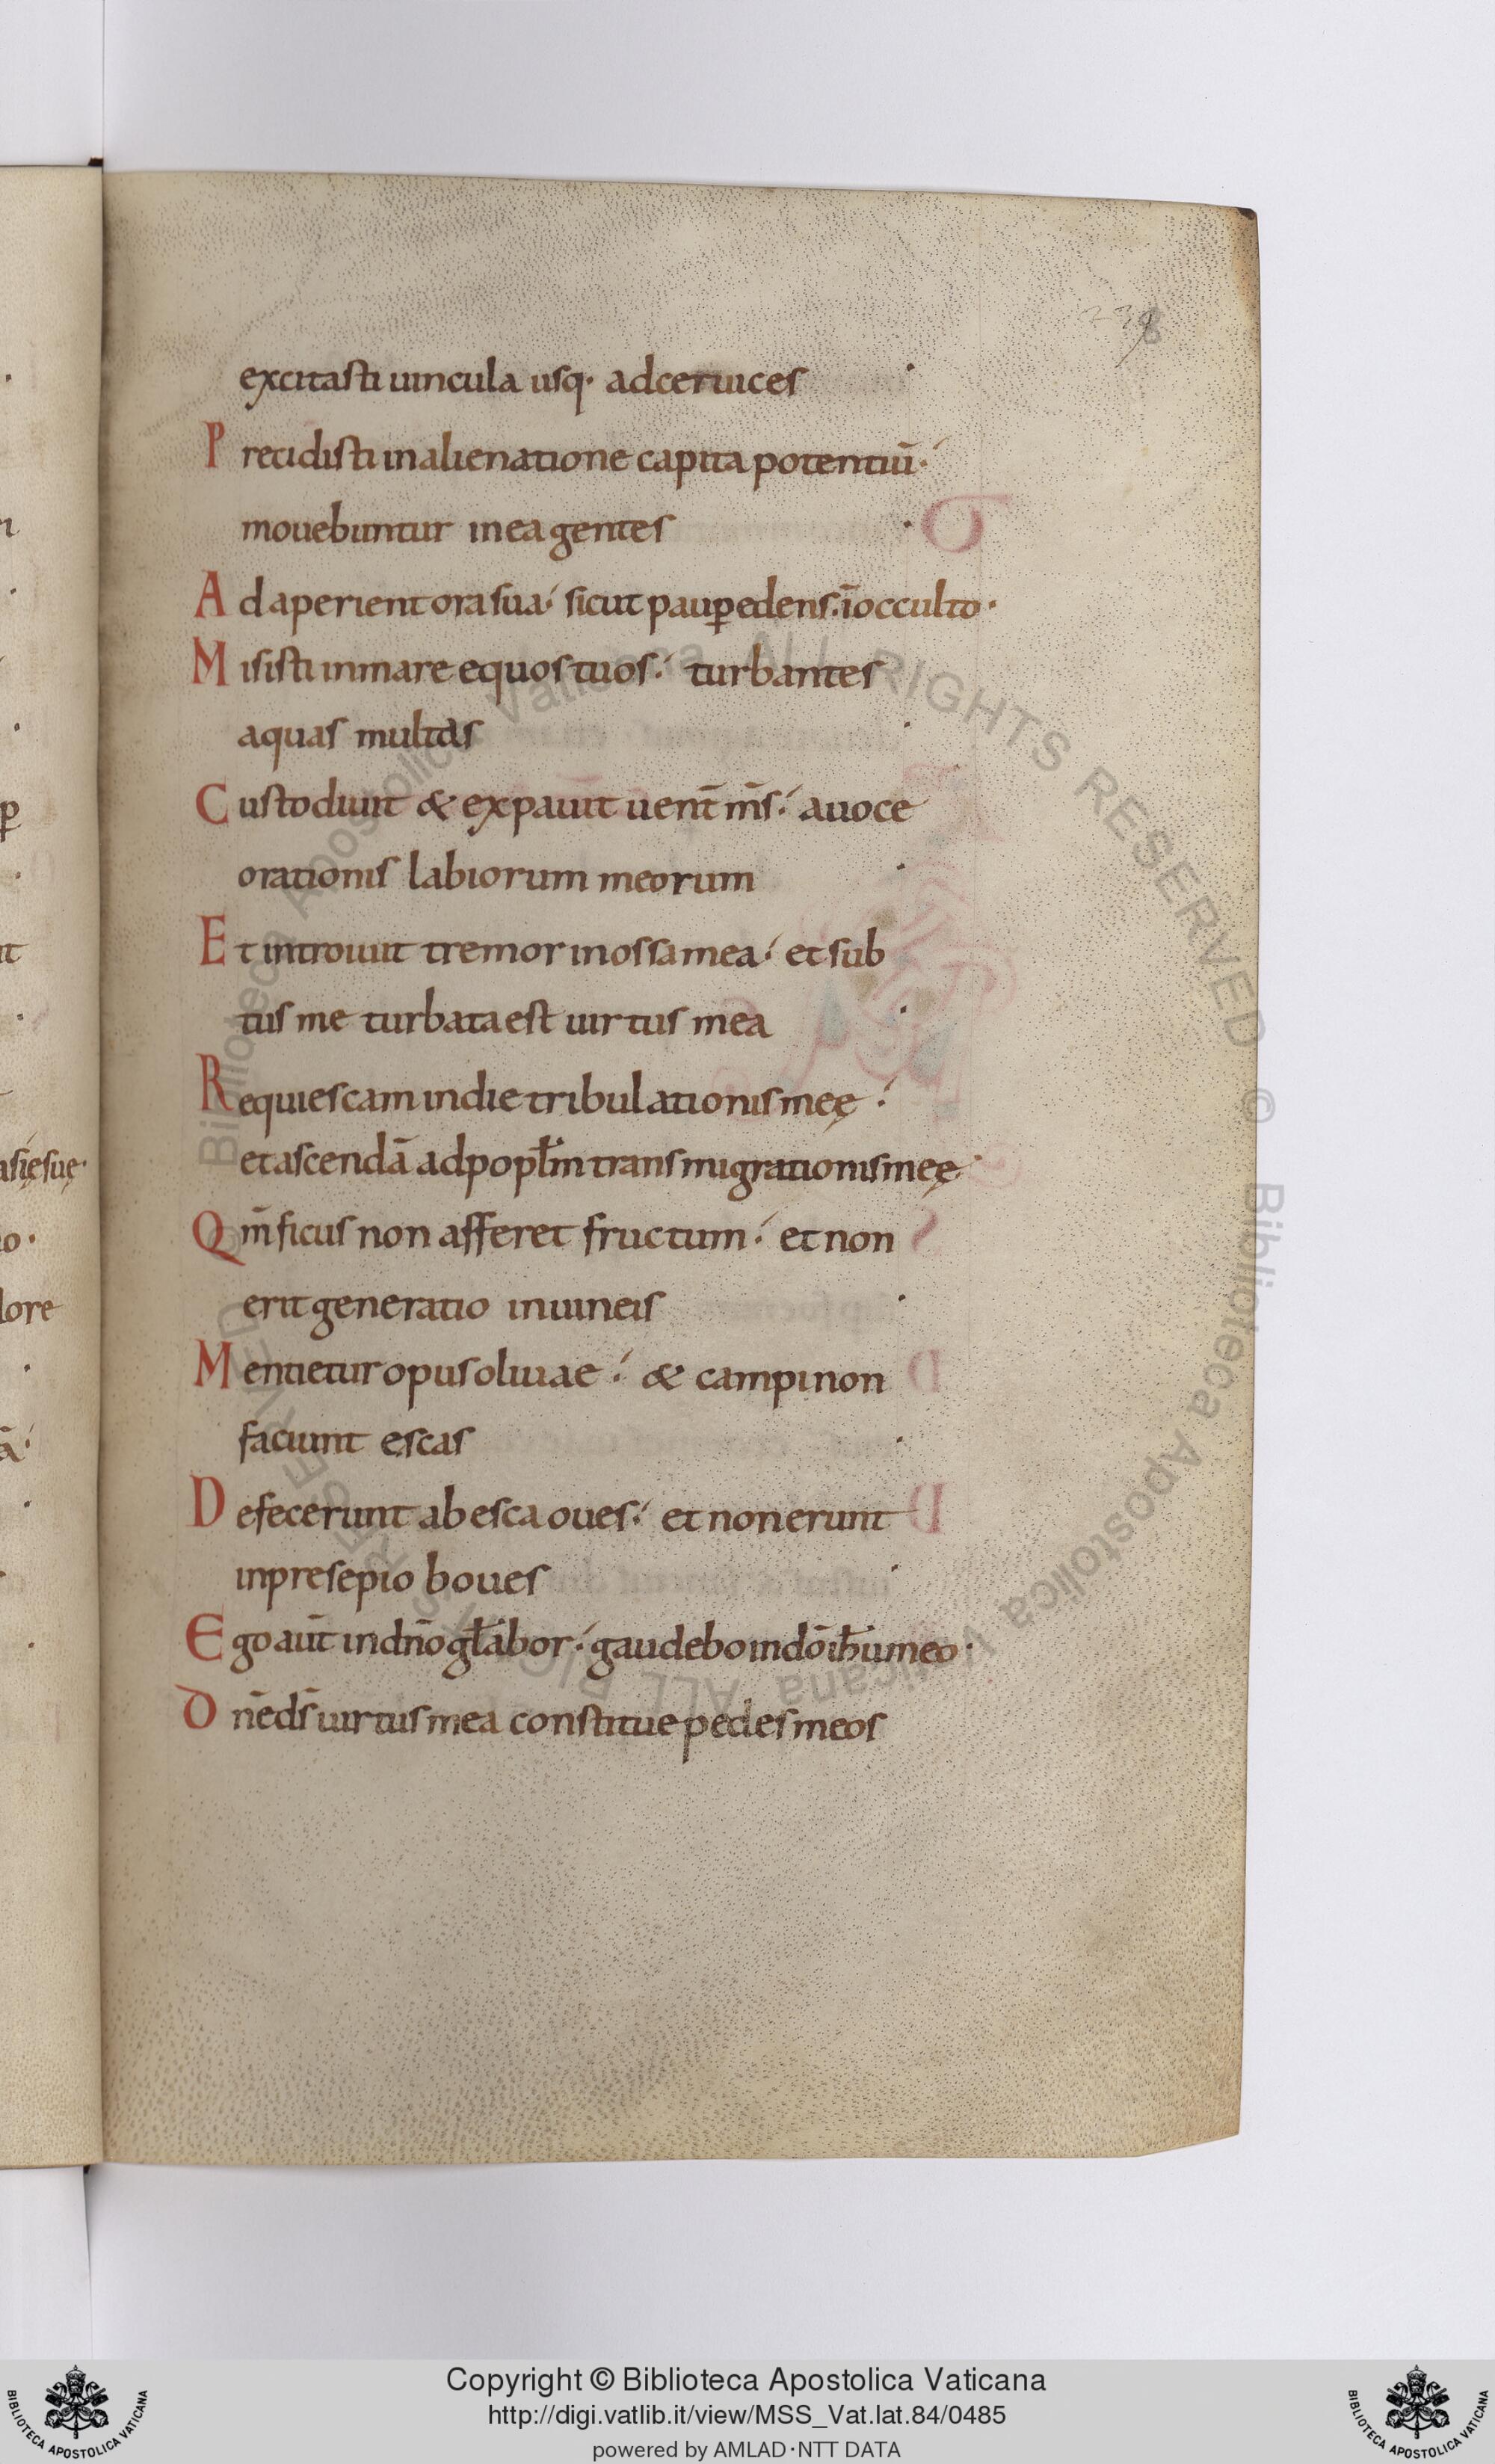 238
excitasti uincula usq· adceruices ·
P recidisti inalienatione capita potentiū·́
mouebuntur inea gentes ·
A daperient ora sua·́ sicut paup̱ edens ·īocculto·
M isisti inmare equos tuos·́ turbantes
aquas multas ·
C ustodiuit & expauit uent̄ m̄s·́ auoce
orationis labiorum meorum ·
E t introiuit tremor inossa mea·́ et sub
tus me turbata est uirtus mea ·
R equiescam indie tribulationis meę·́
et ascendā adpopl̄m transmigrationis meę·
Q m̄ ficus non afferet fructum·́ et non
erit generatio inuineis ·
M entietur opus oliuae·́ & campi non
faciunt escas ·
D efecerunt ab esca oues·́ et non erunt
inpresepio boues ·
E go aut̄ indn̄o gl̄abor·́ gaudebo indō ih̄u meo·
D n̄e ds̄ uirtus mea constitue pedes meos
asięsuę·
lore
Copyright © Biblioteca Apostolica Vaticana
http://digi.vatlib.it/view/MSS_Vat.lat.84/0485
powered by AMLAD·NTT DATA
BIBLIOTECA APOSTOLICA VATICANA
BIBLIOTECA APOSTOLICA VATICANA
Biblioteca Apostolica Vaticana ALL RIGHTS RESERVED © Biblioteca Apostolica Vaticana ALL RIGHTS RESERVED ©